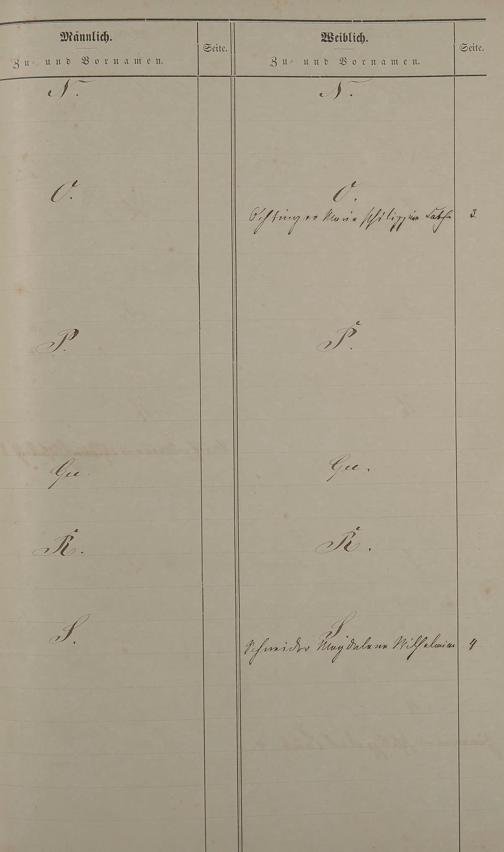 Männlich.
Zu- und Vornamen.
Seite.
Weiblich.
Zu- und Vornamen.
Seite.
N.
N.
O.
O.
Marie Philippine Cath. 3
P.
P.
Qu
Qu.
R.
R.
S.
S.
Schneider Magdalene Wilhelmine 4